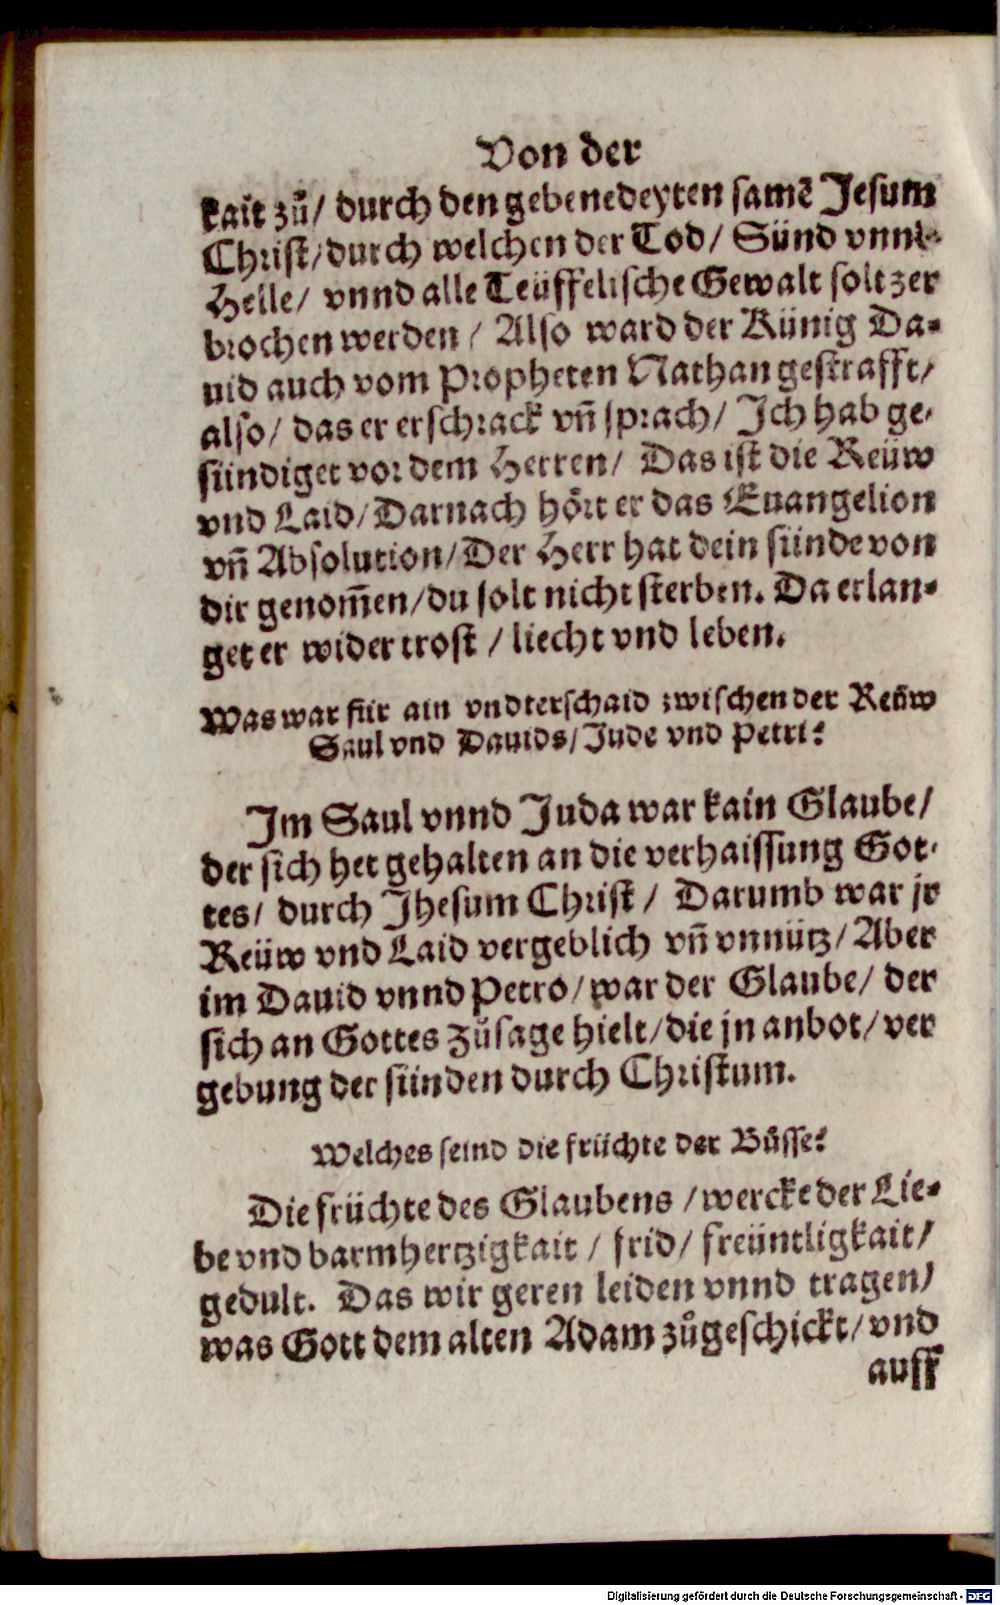 Von der
kait zů/ durch den gebenedeyten samẽ Jesum
Christ/durch welchen der Tod/ Sünd vnnd
Helle/ vnnd alle Teüffelische Gewalt solt zer
brochen werden/ Also ward der Künig Da-
uid auch vom Propheten Nathan gestrafft/
also/ das er erschrack vñ sprach/ Ich hab ge-
sündiget vor dem Herren/ Das ist die Reüw
vnd Laid/Darnach hört er das Euangelion
vñ Absolution/Der Herr hat dein sünde von
dir genom̃en/du solt nicht sterben. Da erlan-
get er wider trost /liecht vnd leben.
Was war für ain vndterschaid zwischen der Reüw
Saul vnd Dauids/Jude vnd Petri?
Im Saul vnnd Juda war kain Glaube/
der sich het gehalten an die verhaissung Got-
tes/ durch Jhesum Christ/ Darumb war jr
Reüw vnd Laid vergeblich vñ vnnütz/Aber
im Dauid vnnd Petro/war der Glaube/ der
sich an Gottes zůsage hielt/die jn anbot/ver
gebung der sünden durch Christum.
Welches seind die früchte der Bůsse?
Die früchte des Glaubens /wercke der Lie-
be vnd barmhertzigkait / frid/ freüntligkait/
gedult. Das wir geren leiden vnnd tragen/
was Gott dem alten Adam zůgeschickt/vnd
auff
Digitalisierung gefördert durch die Deutsche Forschungsgemeinschaft - DFG